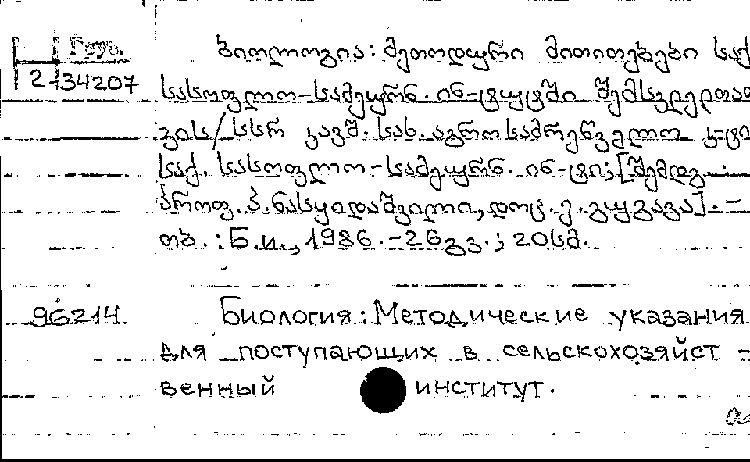 Груз.
2134207
ბიოლოგია: მეთოდური მითითებები საქ
სასოფლო-სამეურნ. ინ-ტუტში შემსვლელთათ
ვის/სსრ კავშ. სახ. აგროსამრეწველო კ-ტი
საქ. სასოფლო-სამეურნ. ინ-ტი; [შემდგ.:
პროფ. პ. ნასყიდაშვილი, დოც. ე. გუგავა]. -
თბ.: Б.и., 1986.-26გვ.; 20სმ.
96214 Биология: Методические указания
для поступающих в сельскохозяйст-
венный институт.